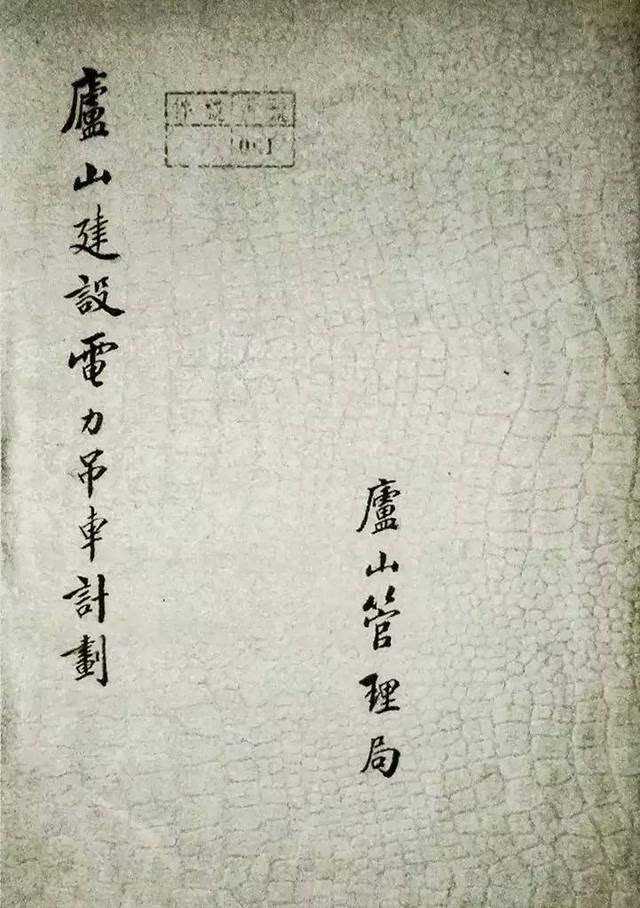 廬山建設電力吊車計劃
廬山管理局